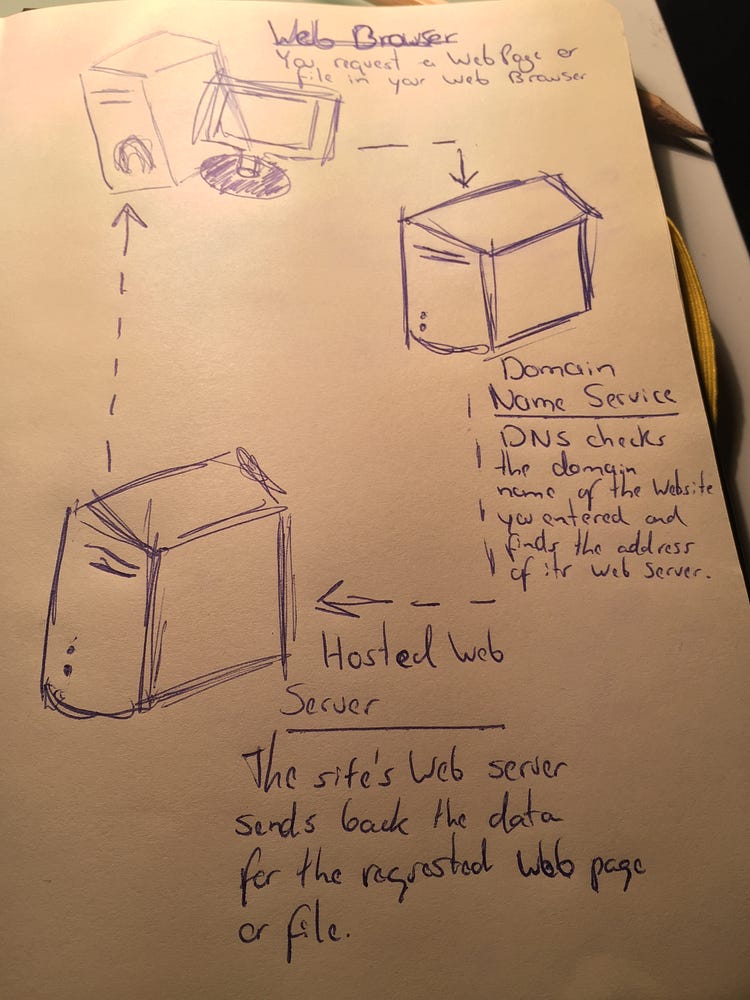 Web Browser
You request a Web Page or
file in your Web Browser
Domain
Name Service
DNS checks
the domain
name of the Website
you entered and
finds the address
of its Web Server.
Hosted Web
Server
The site's Web server
sends back the data
for the requested Web page
or file.